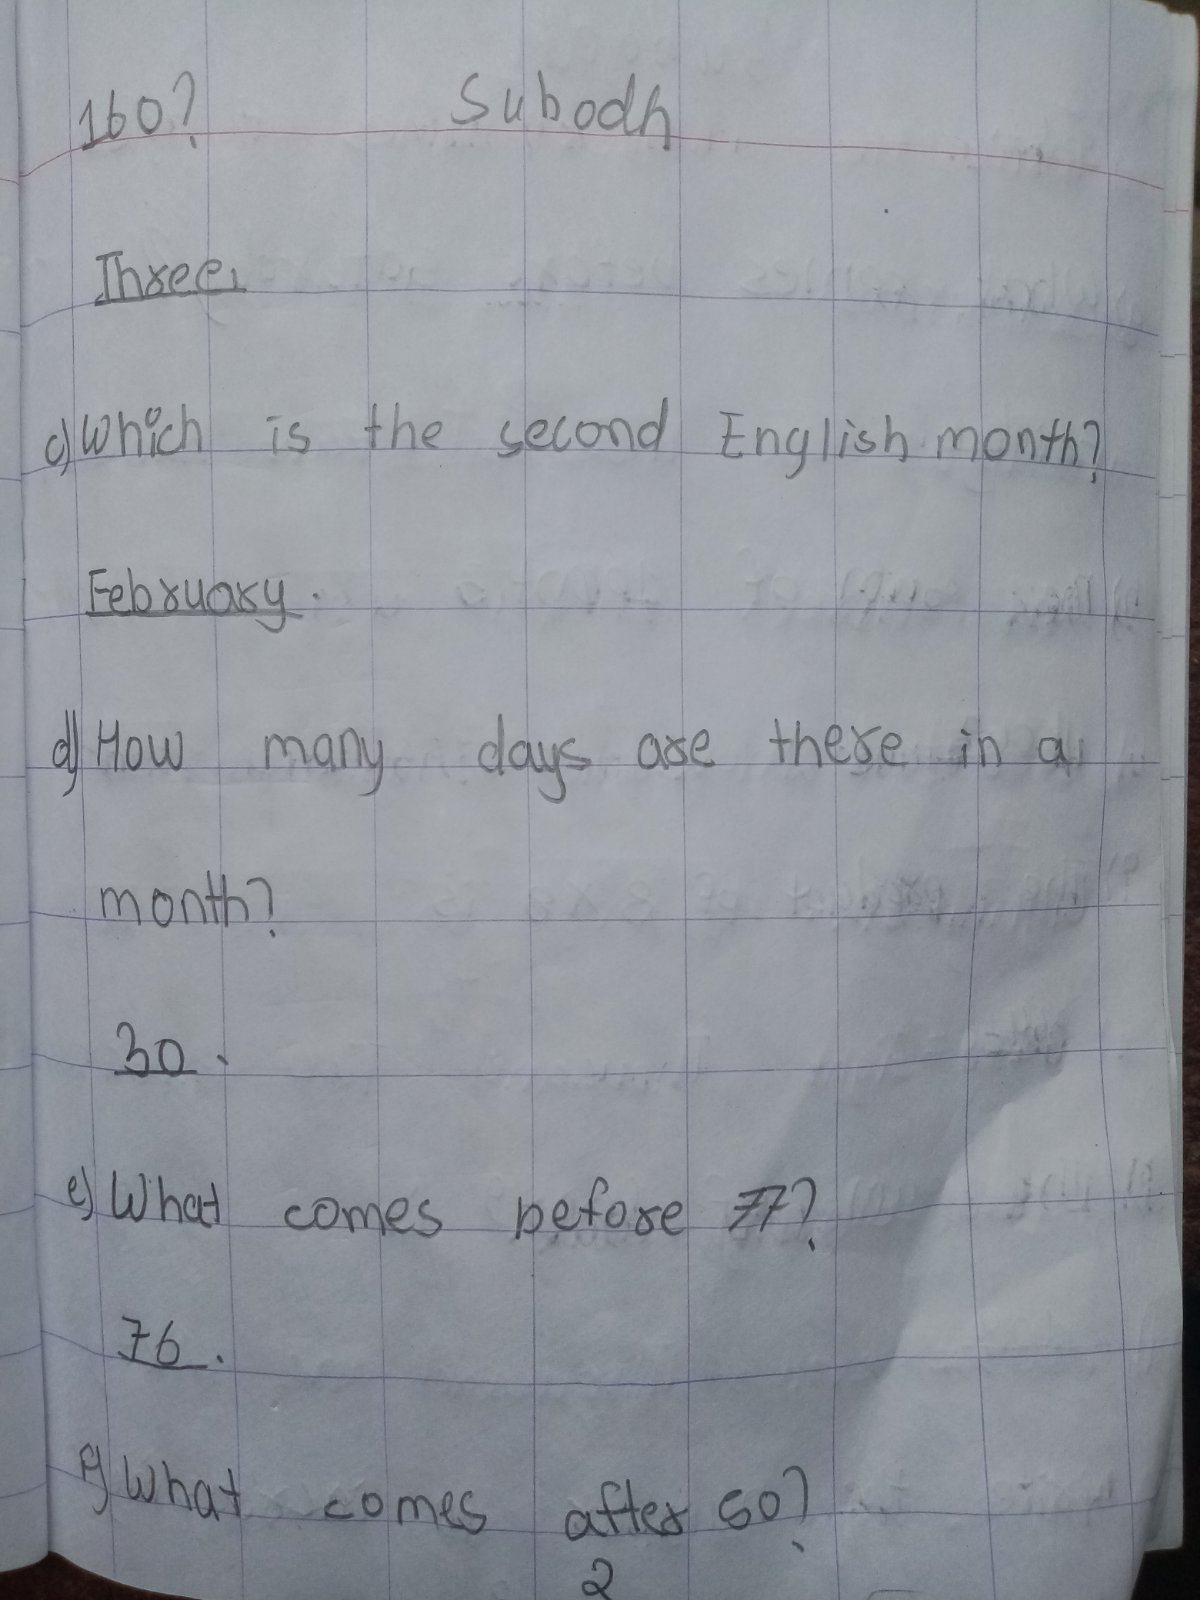 160? Subodh
Three
c) Which is the second English month?
February.
d) How many days are there in a
month?
30.
e) What comes before 77?
76.
f) What comes after 50?
2